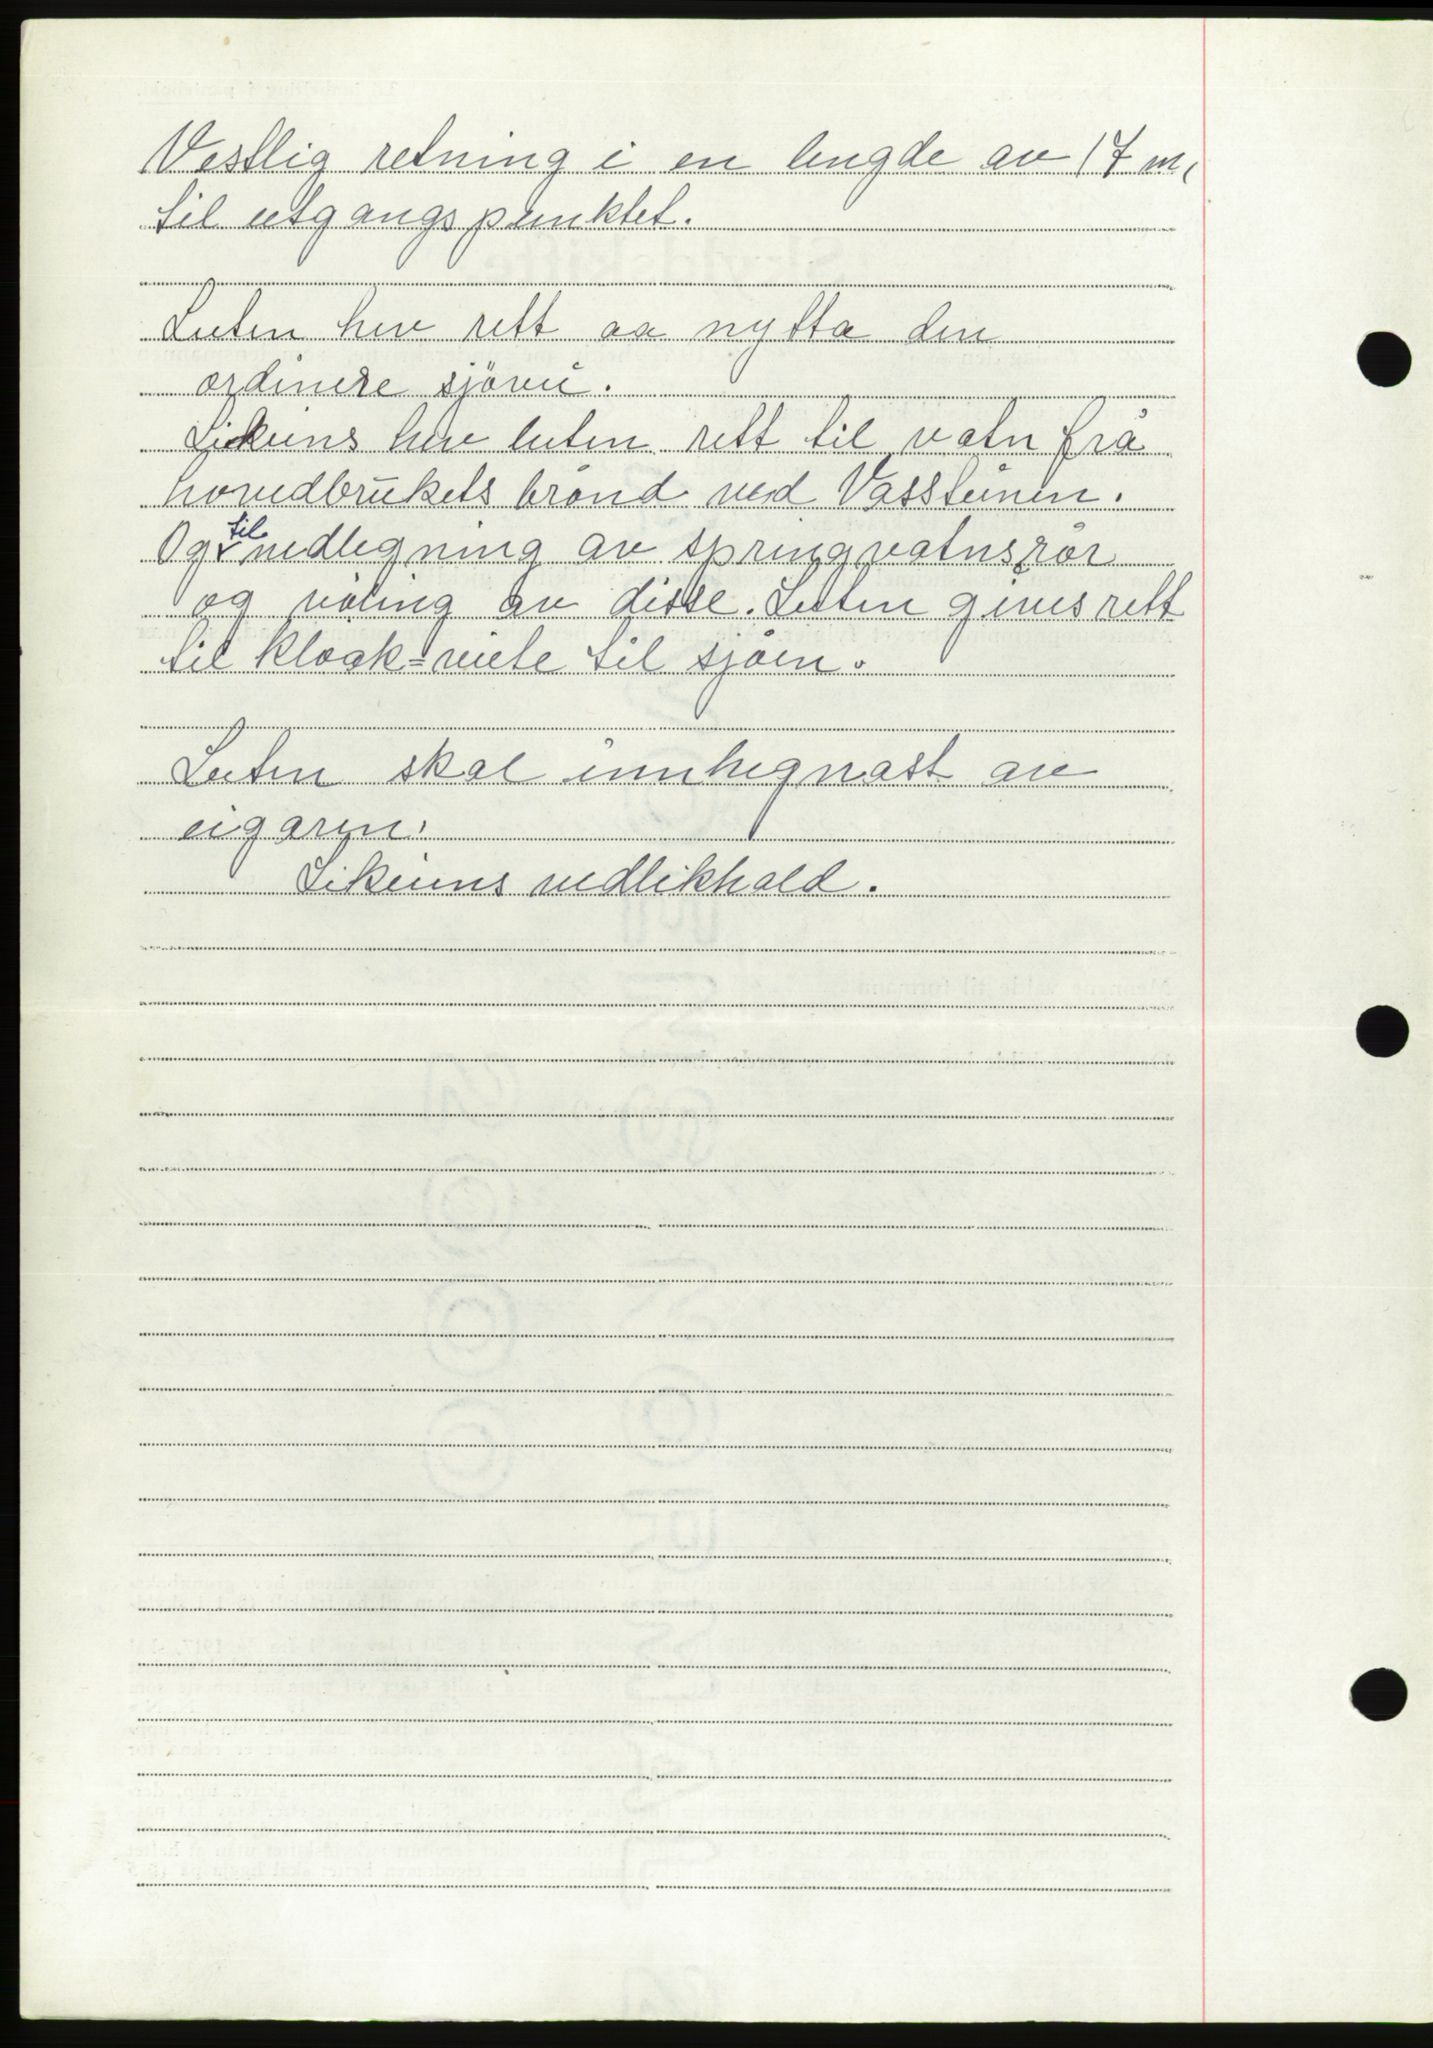 Vestlig retning i en lengde av 17 m,
til utgangspunktet.
Luten hev rett aa nytta den
ordinere sjövei.
Likeins hev luten rett til vatn frå
hovedbrukets brönd ved Vasstunin.
Og til nedlegning av springvatnsrör
og völing av disse. Luten gives rett
til kloak=veite til sjöen.
Luten skal innhegnast av
eigaren.
Likeins vedlikhald.